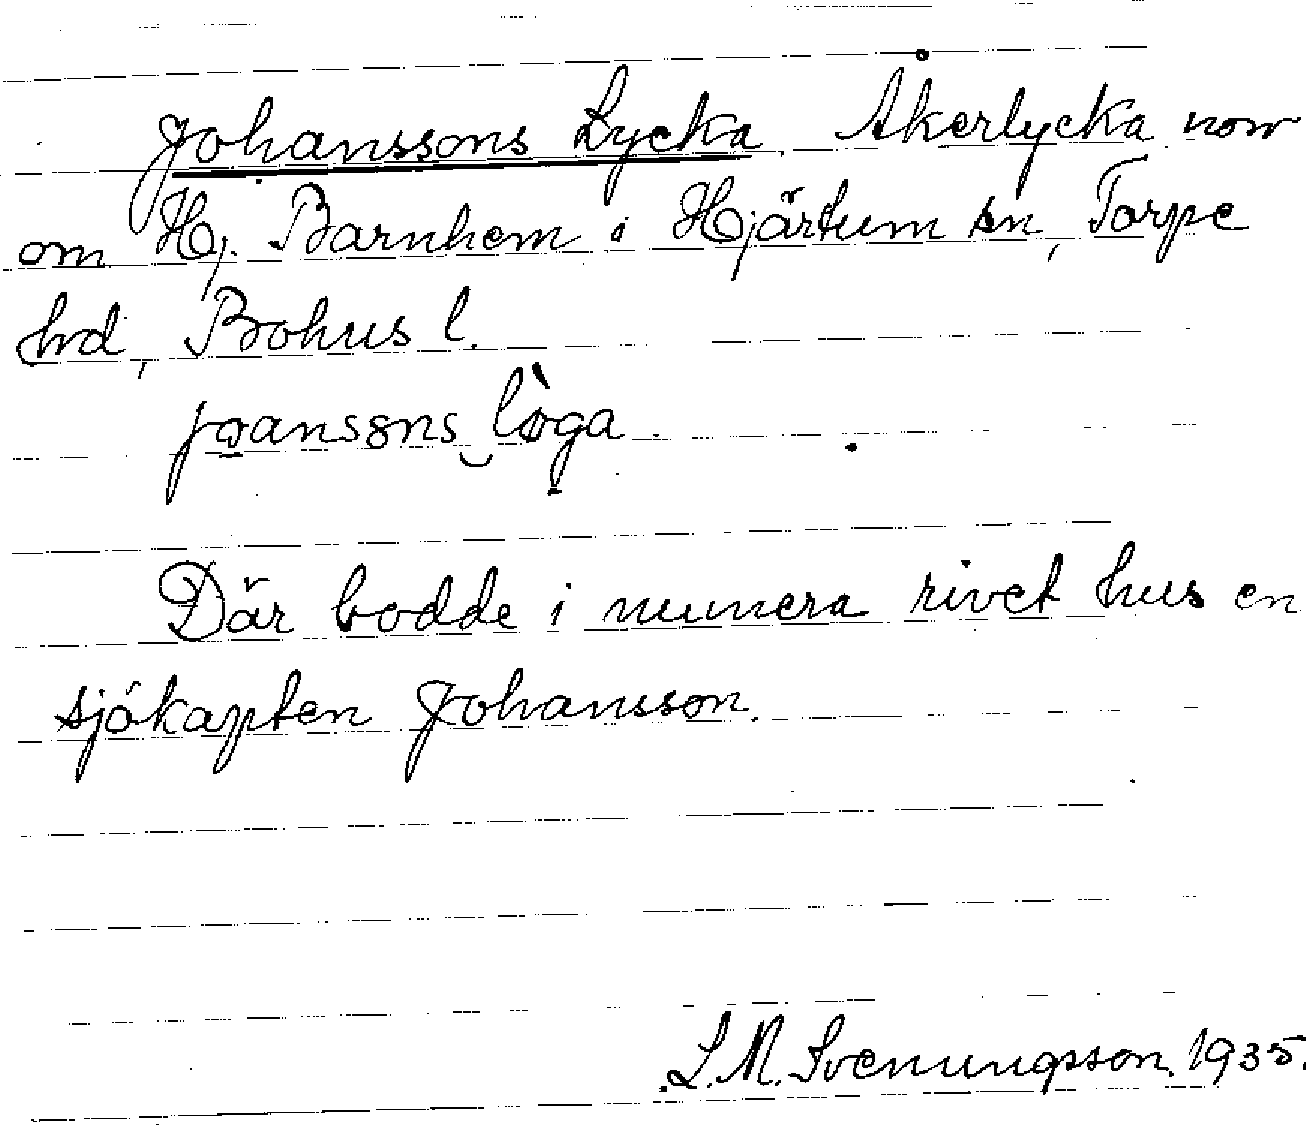 Johanssons Lycka. Åkerlycka norr
om Hj. Barnhem i Hjärtum sn, Torpe
hrd, Bohus l.
joanssns lòga.
Där bodde i numera rivet hus en
sjökapten Johansson.
L.M. Svenungsson. 1935.